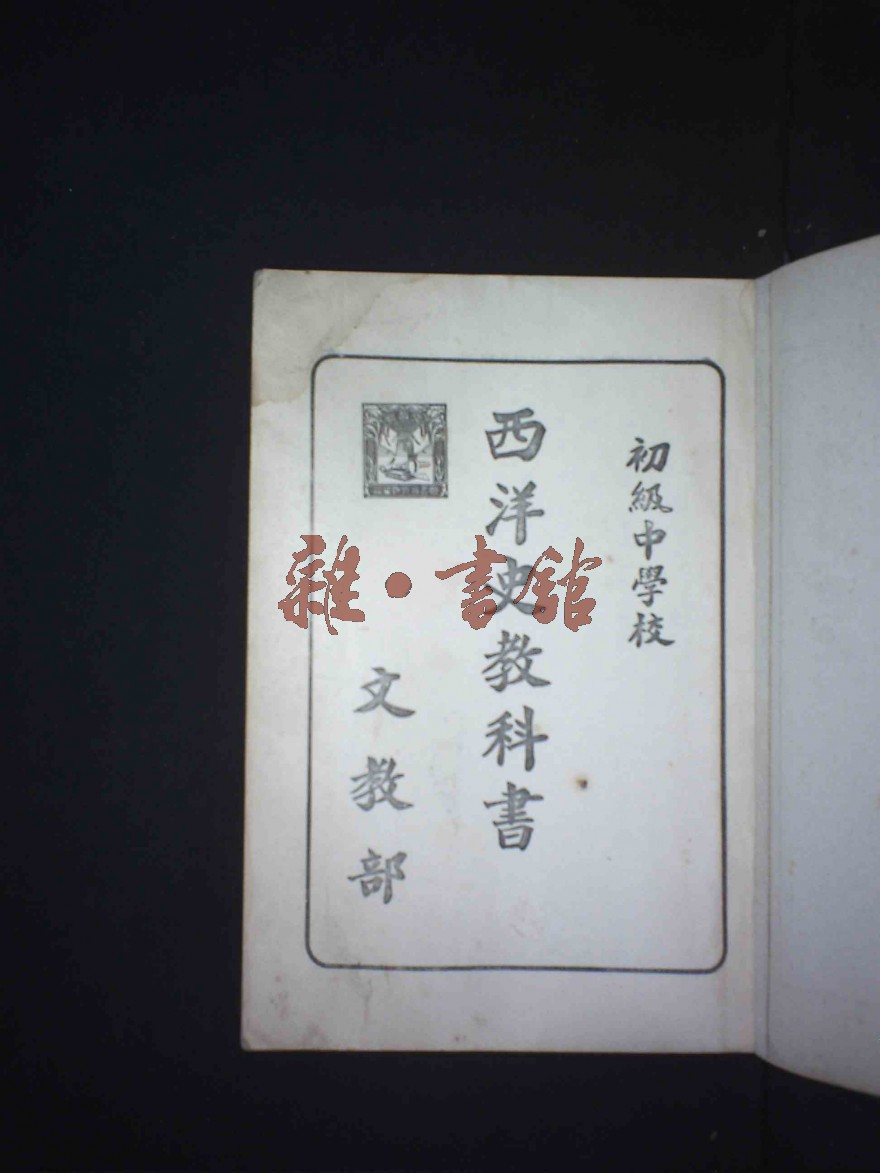 初級中學校
西洋史教科書
文教部
雜·書館